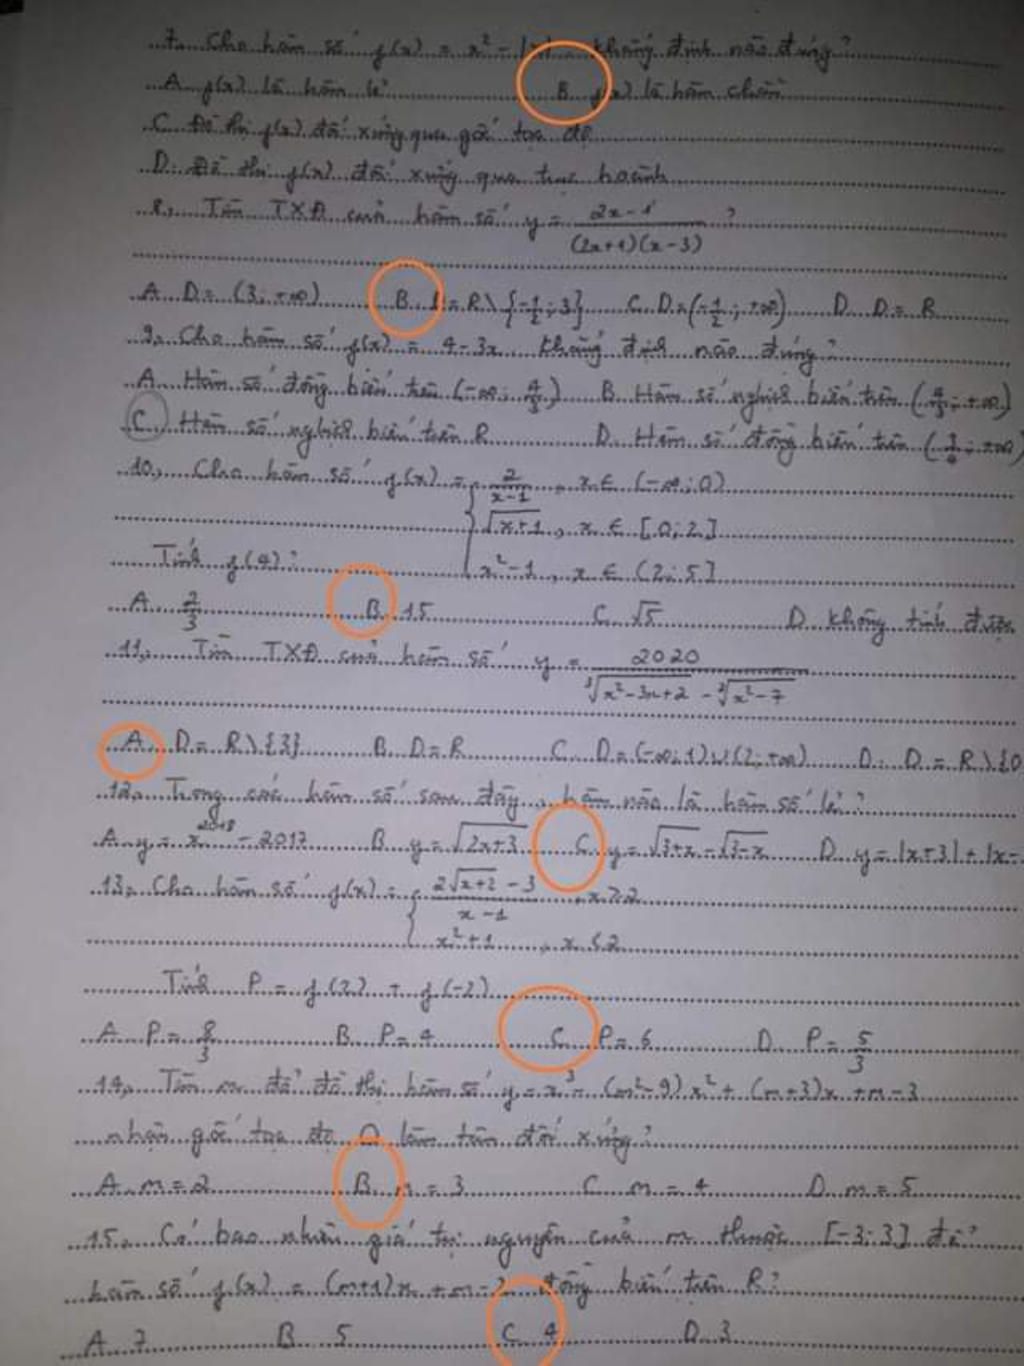 7. Cho hàm số f(x) = x² - |x| khẳng định nào đúng?
A f(x) là hàm lẻ B f(x) là hàm chẵn
C Đồ thị f(x) đối xứng qua gốc tọa độ
D. Đồ thị f(x) đối xứng qua trục hoành
8. Tìm TXĐ của hàm số y = (2x-1)/((2x+1)(x-3)) ?
A D = (3; +∞) B. D = R\{-1/2; 3} C. D = (-1/2; +∞) D D = R
9. Cho hàm số f(x) = 4-3x khẳng định nào đúng?
A. Hàm số đồng biến trên (-∞; 4/3) B. Hàm số nghịch biến trên (4/3; +∞)
C. Hàm số nghịch biến trên R D. Hàm số đồng biến trên (3/4; +∞)
10. Cho hàm số f(x) = { 2/(x-1), x ∈ (-∞; 0)
√(x+1), x ∈ [0; 2]
Tính f(4)? x²-1, x ∈ (2; 5]
A. 2/3 B. 15 C. √5 D không tính được
11. Tìm TXĐ của hàm số y = 2020/(∛(x²-3x+2) - ∛(x²-7))
A. D = R\{3} B. D = R C. D = (-∞; 1)∪(2; +∞) D. D = R\{0
12. Trong các hàm số sau đây, hàm nào là hàm số lẻ?
A y = x²⁰¹⁸ - 2017 B y = √(2x+3) C. y = √(3+x) - √(3-x) D. y = |x+3| + |x-
13. Cho hàm số f(x) = { (2√(x+2) - 3)/(x-1), x ≥ 2
x²+1, x < 2
Tính P = f(2) + f(-2)
A P = 8/3 B P = 4 C P = 6 D. P = 5/3
14. Tìm m để đồ thị hàm số y = x³ - (m²-9)x² + (m+3)x + m - 3
nhận gốc tọa độ O làm tâm đối xứng?
A m = 2 B. m = 3 C m = 4 D. m = 5
15. Có bao nhiêu giá trị nguyên của m thuộc [-3; 3] để
hàm số f(x) = (m+1)x + m - 2 đồng biến trên R?
A 7 B 5 C 4 D. 3